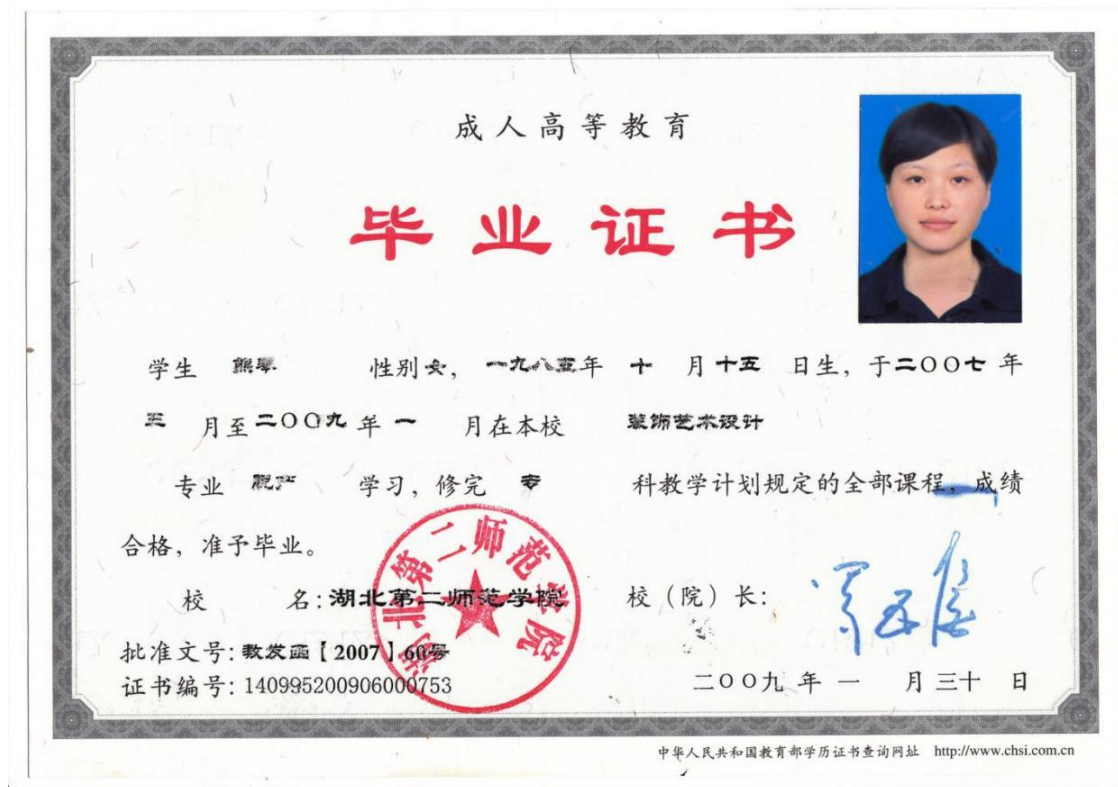 成人高等教育
毕业证书
学生 熊翠 性别女，一九八五年 十 月十五 日生，于二〇〇七 年
三 月至二〇〇九 年 一 月在本校 装饰艺术设计
专业 脱产 学习，修完 专 科教学计划规定的全部课程，成绩
合格，准予毕业。
校 名：湖北第二师范学院 校（院）长：
湖北第二师范学院
批准文号：教发函【2007】60号
证书编号：140995200906000753 二〇〇九 年 一 月 三十 日
中华人民共和国教育部学历证书查询网址 http://www.chsi.com.cn